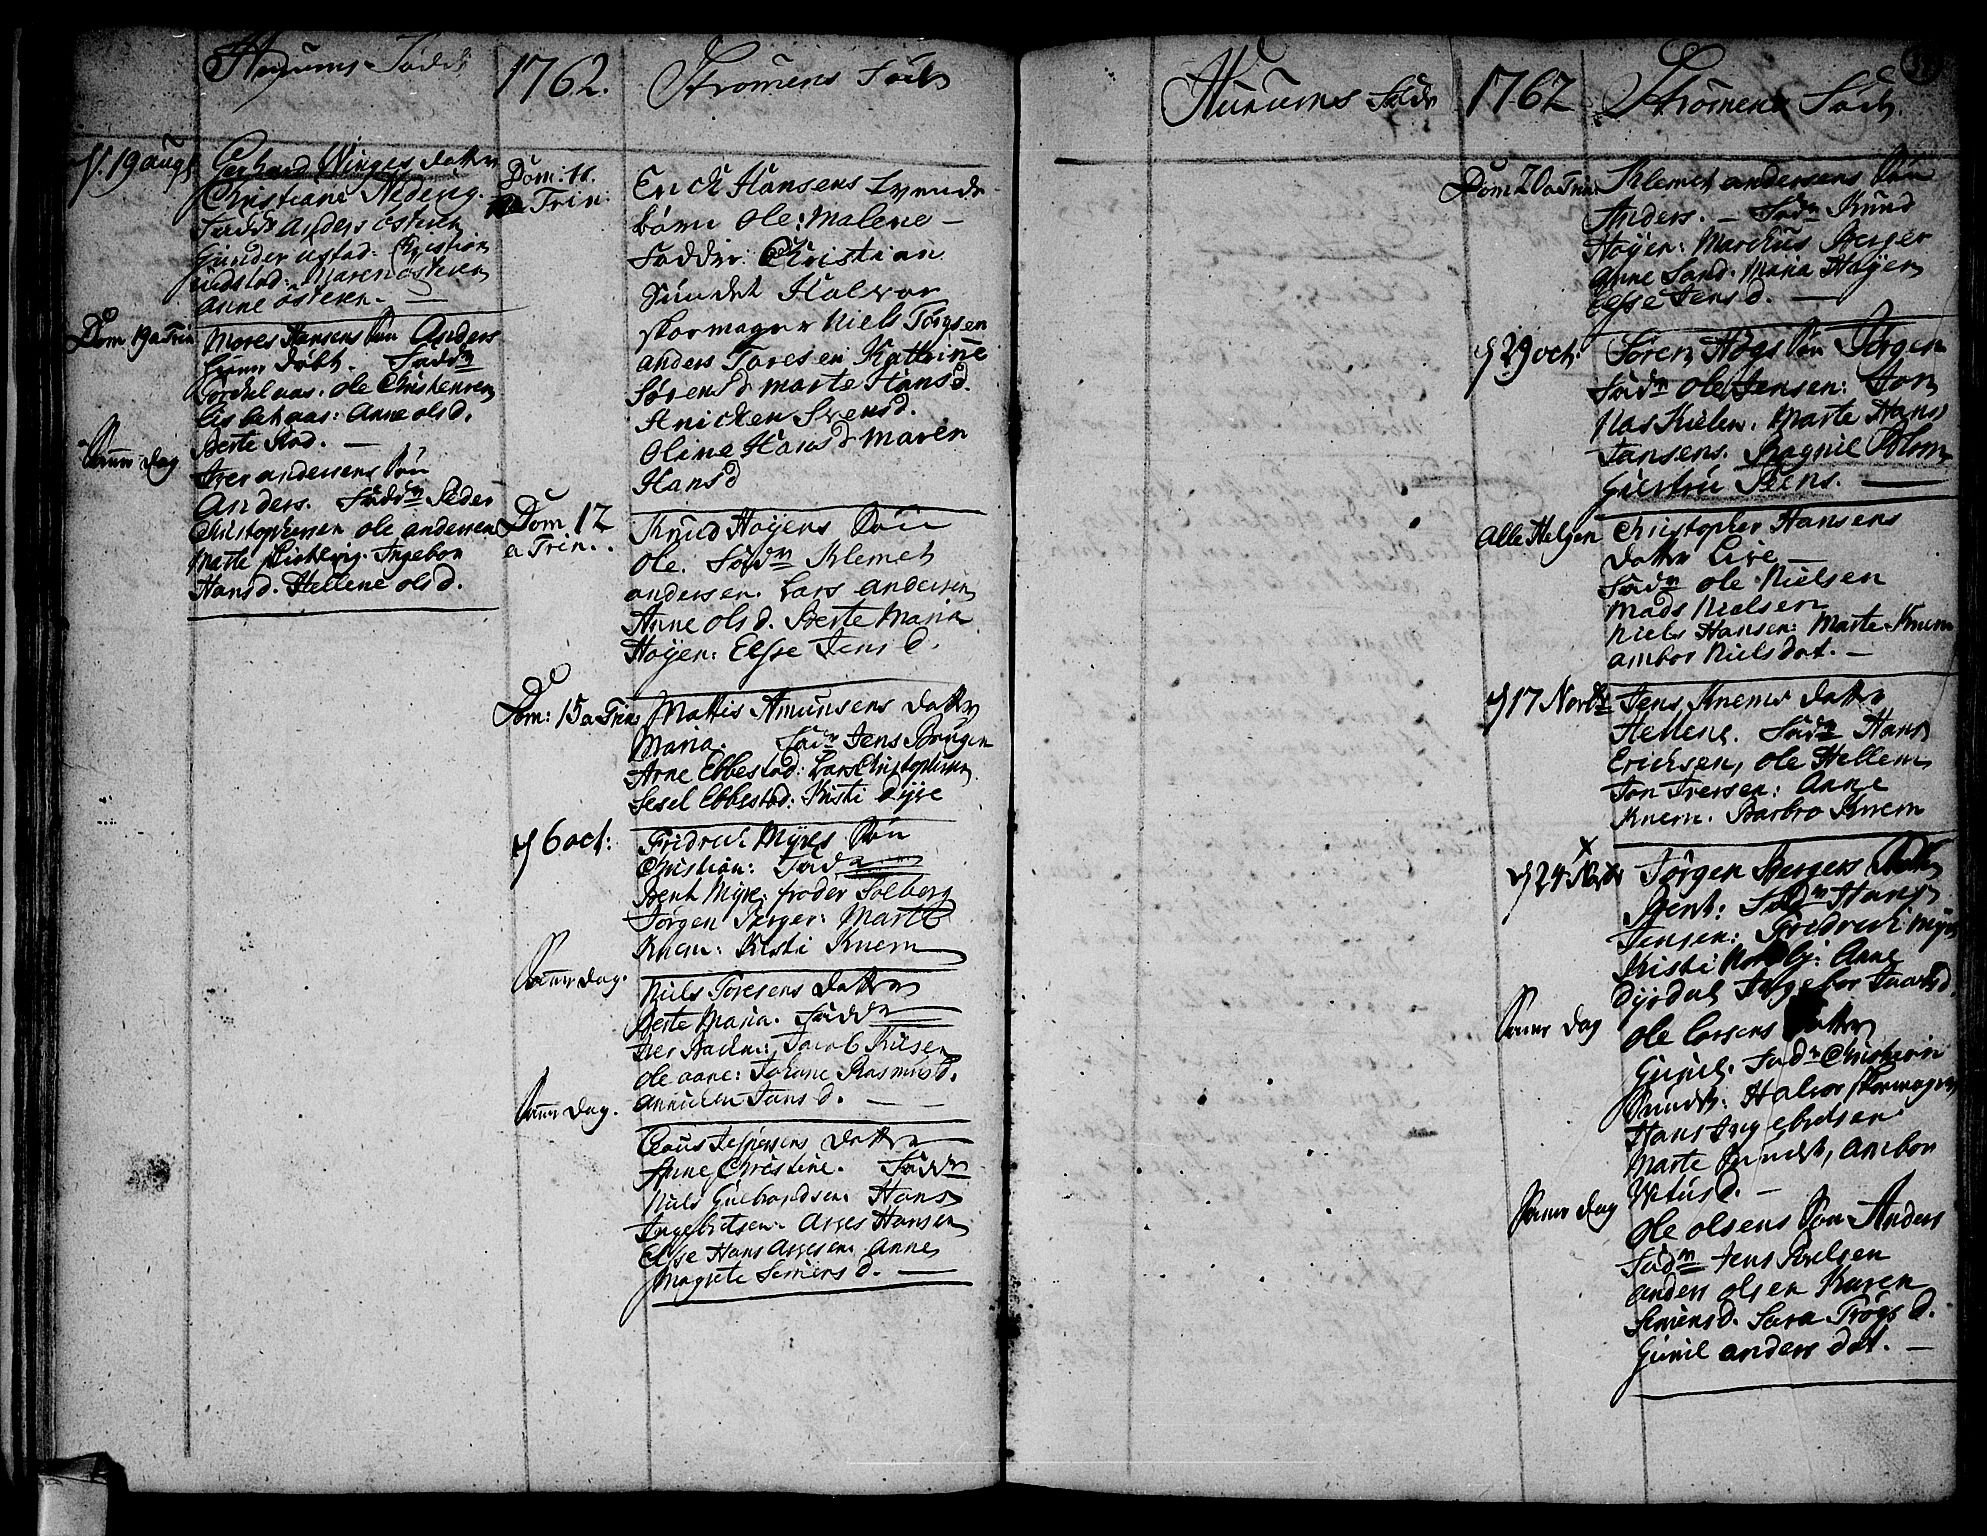 Hurums Födde
1762.
Strömens Födte
d. 19 augt
Gerhard Winges datter
Christiane Nideng.
Fadd: Anders österen
Gunder ustad: Christion
ustad: Maren österen
Anne österen. —
Dom 19 a Trin
Mores Hansens Sön Anders
hiem döbt. Fadd
aas. Ole Christensen
Lisbet aas: Anne olsd.
Berte Rød. —
Samme dag
Iver andersens Sön
Anders. Faddn Peder
Christophersen ole andersen
Marte Ingebor
Hansd. Hellene olsd.
Dom: 11.
a Trin:
Erick Hansens tvende
börn Ole: Malene —
Fadder: Christian
Sundet Halvor
skormager Niels Törgsen
anders Toresen Kathrine
Sörensd Marte Hansd.
Anicken Svensd.
Oline Hansd Maren
Hansd
Dom 12
a Trin.
Knud Höyens Sön
Ole. Fadn Klemet
andersen. Lars andersen
Anne olsd. Berte Maria
Höyen: Elsse Jensd.
Dom: 15 a Trin:
Mattis Amunsens datter
Maria. Fadn Jens Brugen
Arne Ebbestad: Lars Christophersen
Sesel Ebbestad: Kristi Dyve
d 6 oct:
Fridrich Myres Sön
Christian: Fadn
Bent Myre: froder Solberg
Jörgen Berger: Marte
Knem: Kisti Knem
Samme dag.
Niels Toresens datter
Berte Maria. Fadder
Iver Backen: Jacob
ole aane: Johane Rasmusd.
Annicken Jansd. —
Samme dag.
Claus Jespersens datter
Anne Christine. Fadder
Niels Gulbrandsen. Hans
Ingebretsen. Asges Hansen
Elsse Hans Asgesen. Anne
Magrete Simensd. —
Hurums Födde
1762
Strömens Födte
Dom 20 a Trin
Klemet andersens Sön
Anders. — Fadn Knud
Höyen: Marchus Berger
Anne Sand. Maria Höyen
Elsse Jensd. —
d 29 oct:
Sören Högs Sön Jörgen
Fadn Ole Jensen: Jon
Nas Kielen. Marte Hans
Jansens. Ragnil Blom
Giertru Steens. —
Alle Helgen
Christopher Hansens
datter Live —
Fadn Ole Nielsen
Mads Nielsen
Niels Hansen: Marte Knem
ambor Nielsdat. —
d 17 Novbr
Jens Knems datter
Hellene. Fadn Hans
Ericksen, Ole Hellem
Jon Iversen: Anne
Knem. Barbro Knem
d 24 Novbr
Jörgen Bergers
Bent: Fadn Hans
Jensen: Fridrich Myre
Kristi: Anne
Dyrdal Ingebor
Samme dag
Ole Larsens datter
Gunil. Fadn Christian
Sundet: Halvor skormager
Hans Ingebretsen
Marte Sundet, ambor
Vetusd. —
Samme dag
Ole olsens Sön Anders
Fadn Jens Poulsen
anders olsen Karen
Simensd. Sara Trögsd.
Gunil anders dat. —